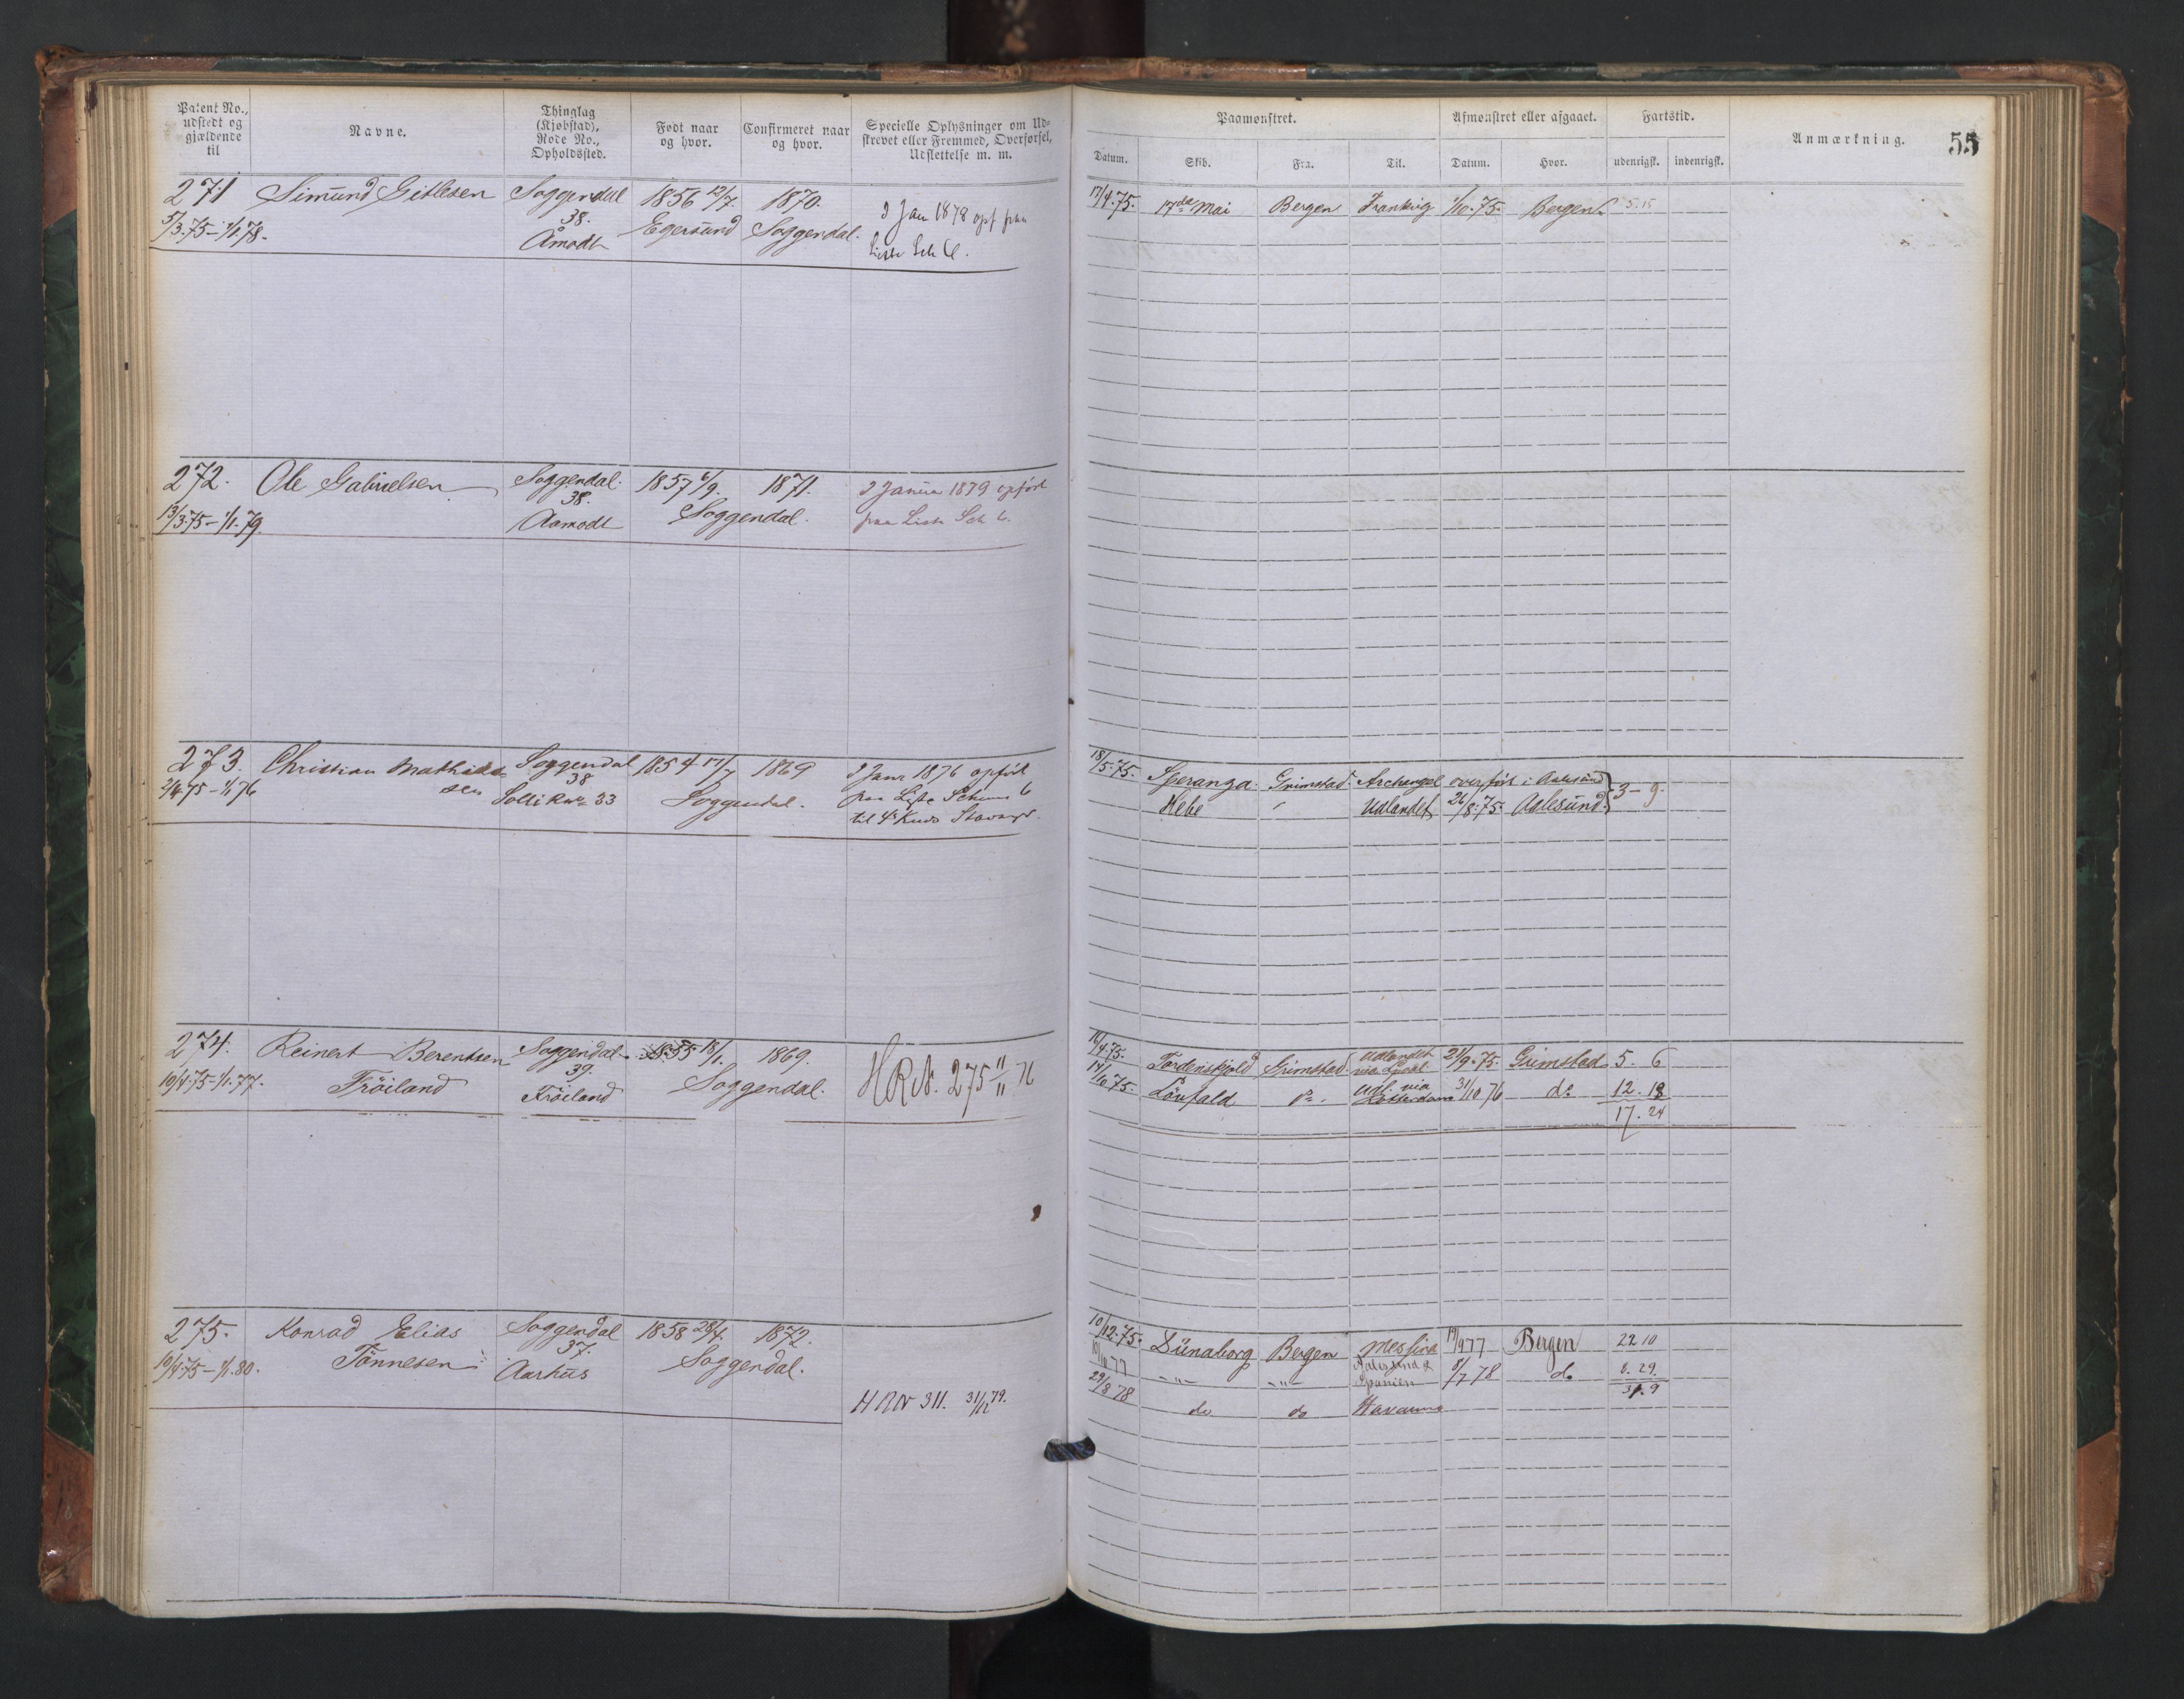 Patent No.,
udstedt og
gjældende
til
Navne.
Thinglag
(Kjøbstad),
Rode No.,
Opholdssted.
Født naar
og hvor.
Confirmeret naar
og hvor.
Specielle Oplysninger om Ud-
skrevet eller Fremmed, Overførsel,
Udslettelse m. m.
271 Simund Gitlesen Soggendal 1856 12/7. 1870.
5/3.75-1/1.78. 38. Egersund Soggendal.
Åmodt
2 Jan 1878 opf paa
Liste Sch 6.
272. Ole Gabrielsen Soggendal. 1857 6/9. 1871.
13/3.75-1/1.79. 38. Soggendal.
Aamodt
2 Januar 1879 opført
paa Liste Sch 6.
273. Christian Mathias- Soggendal 1854 17/7 1869
2/4.75-1/1.76 sen 38 Soggendal.
Solli 33
2 Janr 1876 opført
paa Liste Schema 6
til Stavanger.
274. Reinert Berentsen Soggendal 18.55 18/1. 1869.
10/4.75-1/1.77. Tröiland 39. Soggendal.
Tröiland
HRN. 275 11/11 76
275. Konrad Elias Soggendal 1858 28/4. 1872.
10/4.75-1/1.80. Tönnesen 37. Soggendal.
Aarhus
HRN 311. 31/12 79.
Paamønstret.
Afmønstret eller afgaaet.
Fartstid.
Anmærkning.
55
Datum. Skib. Fra. Til. Datum. Hvor. udenrigsk. indenrigsk.
17/4.75. 17de Mai Bergen Frankrig 1/10.75. Bergen 5.15
18/5.75. Speranza. Grimstad. Archangel overført i Aalesund
Hebe " Udlandet 26/8.75. Aalesund 3-9
16/4.75. Tordenskjold Grimstad. Udlandet 21/9.75. Grimstad 5. 6
17/10 75. Löufald do. Udl. via 31/10 76 do 12. 18
Rotterdam
17. 24
10/12.75. Dünaborg Bergen Messina 19/9 77 Bergen 22 10
10/10 77 -"- -"- Aalesund & 8/7 78 do 8. 29.
Spanien
31. 9
29/8 78 do do Havanna